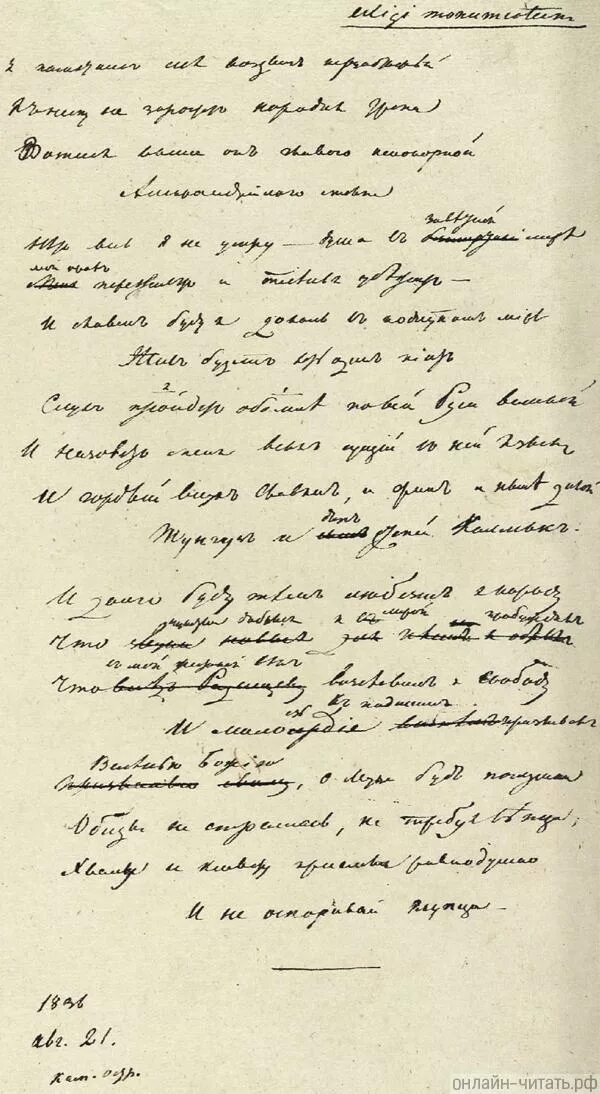 exegi monumentum
Я памятникъ себѣ воздвигъ нерукотворный
Къ нему не заростетъ народная тропа
Вознесся выше онъ главою непокорной
Александрійского столпа
завѣтной
Нѣтъ весь я не умру — душа въ лирѣ
мой прахъ
переживетъ и тлѣнья убѣжитъ —
И славенъ буду я доколь въ подлунномъ мірѣ
Живъ будетъ хоть одинъ піитъ
Слухъ пройдетъ обо мнѣ по всей Руси великой
И назоветъ меня всякъ сущій въ ней языкъ
И гордый внукъ Славянъ, и Финнъ и нынѣ дикой
другъ
Тунгузъ и степей Калмыкъ.
И долго буду тѣмъ любезенъ я народу
чувства добрыя я лирой пробуждалъ
Что звуки новые для пѣсенъ я обрѣлъ
въ мой жестокій вѣкъ
Что вслѣдъ Радищеву возславилъ я свободу
къ падшимъ
И милосердіе воспѣлъ призывалъ
Веленью Божію
Призванью своему, о Муза будь послушна
Обиды не страшась, не требуя вѣнца;
Хвалу и клевету пріемли равнодушно
И не оспоривай глупца —
1836
авг. 21.
Кам. остр.
онлайн-читать.рф